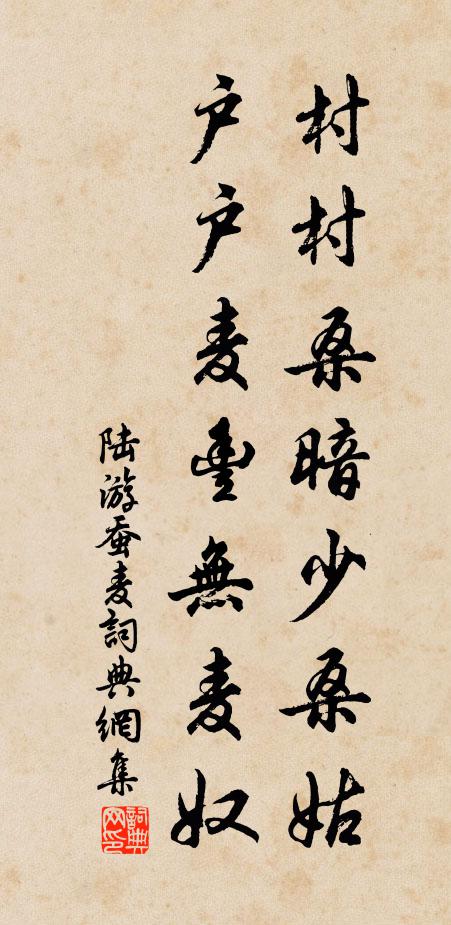 村村桑暗少桑姑
户户麦豊無麦奴
陆游蚕麦詞典網集
詞典网印